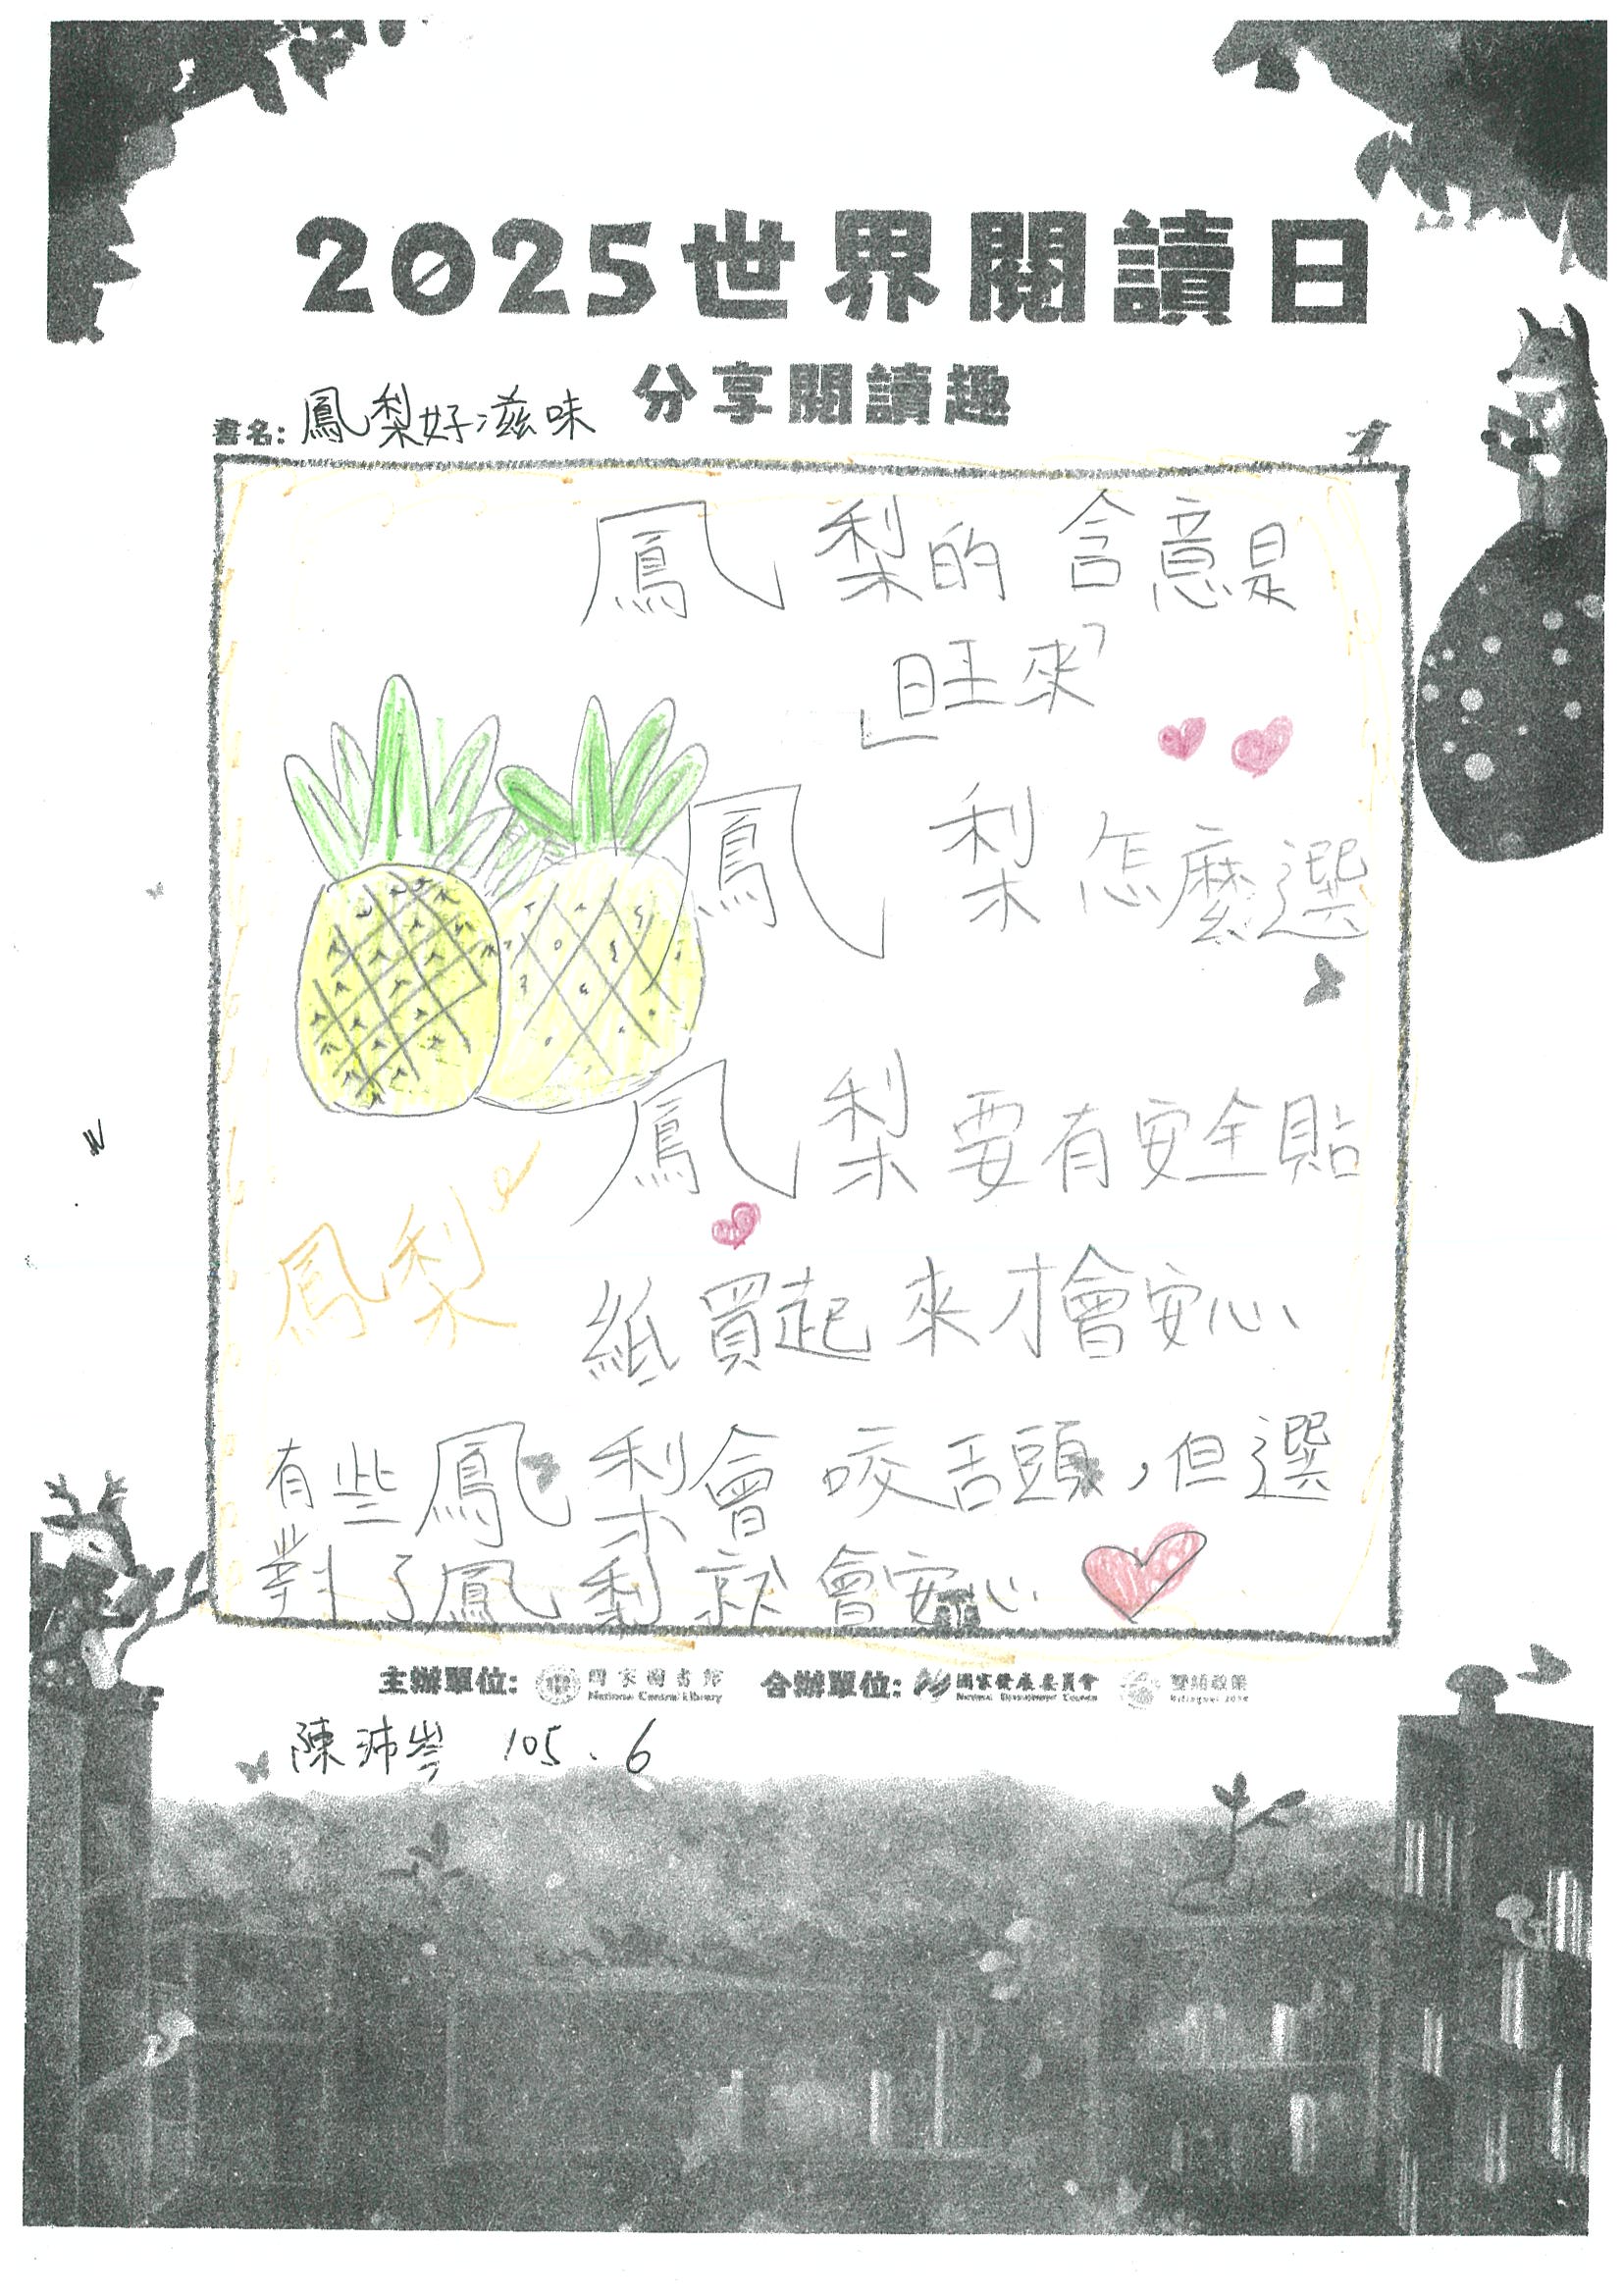 2025世界閱讀日
分享閱讀趣
書名：鳳梨好滋味
鳳梨的含意是
「旺來」
鳳梨怎麼選
鳳梨要有安全貼
鳳梨
紙買起來才會安心
有些鳳梨會咬舌頭，但選
對了鳳梨就會安心
主辦單位： 國家圖書館 National Central Library 合辦單位： 國家發展委員會 National Development Council 雙語政策 Bilingual 2030
陳沛岑 105.6